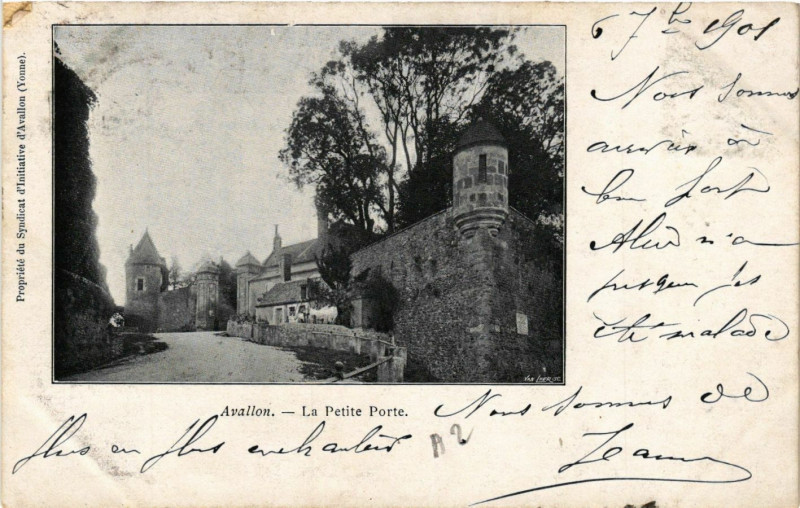 Propriété du Syndicat d'Initiative d'Avallon (Yonne).
6 7bre 901
Nous sommes
arrivés à
bon port
Alice n'a
presque pas
été malade
Avallon. — La Petite Porte.
Nous sommes de
plus en plus enchantés
Jeanne
A2